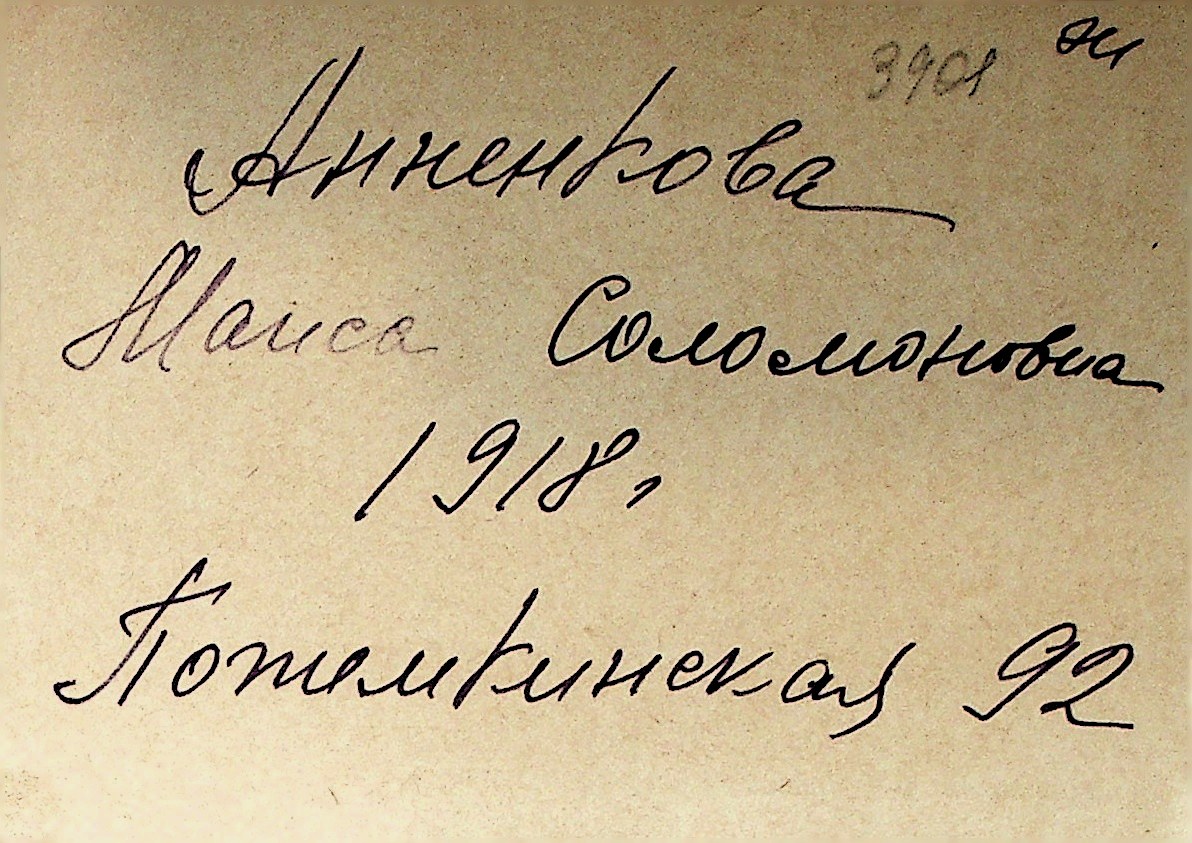 Анненкова
Таиса Соломоновна
1918г
Потемкинская 92